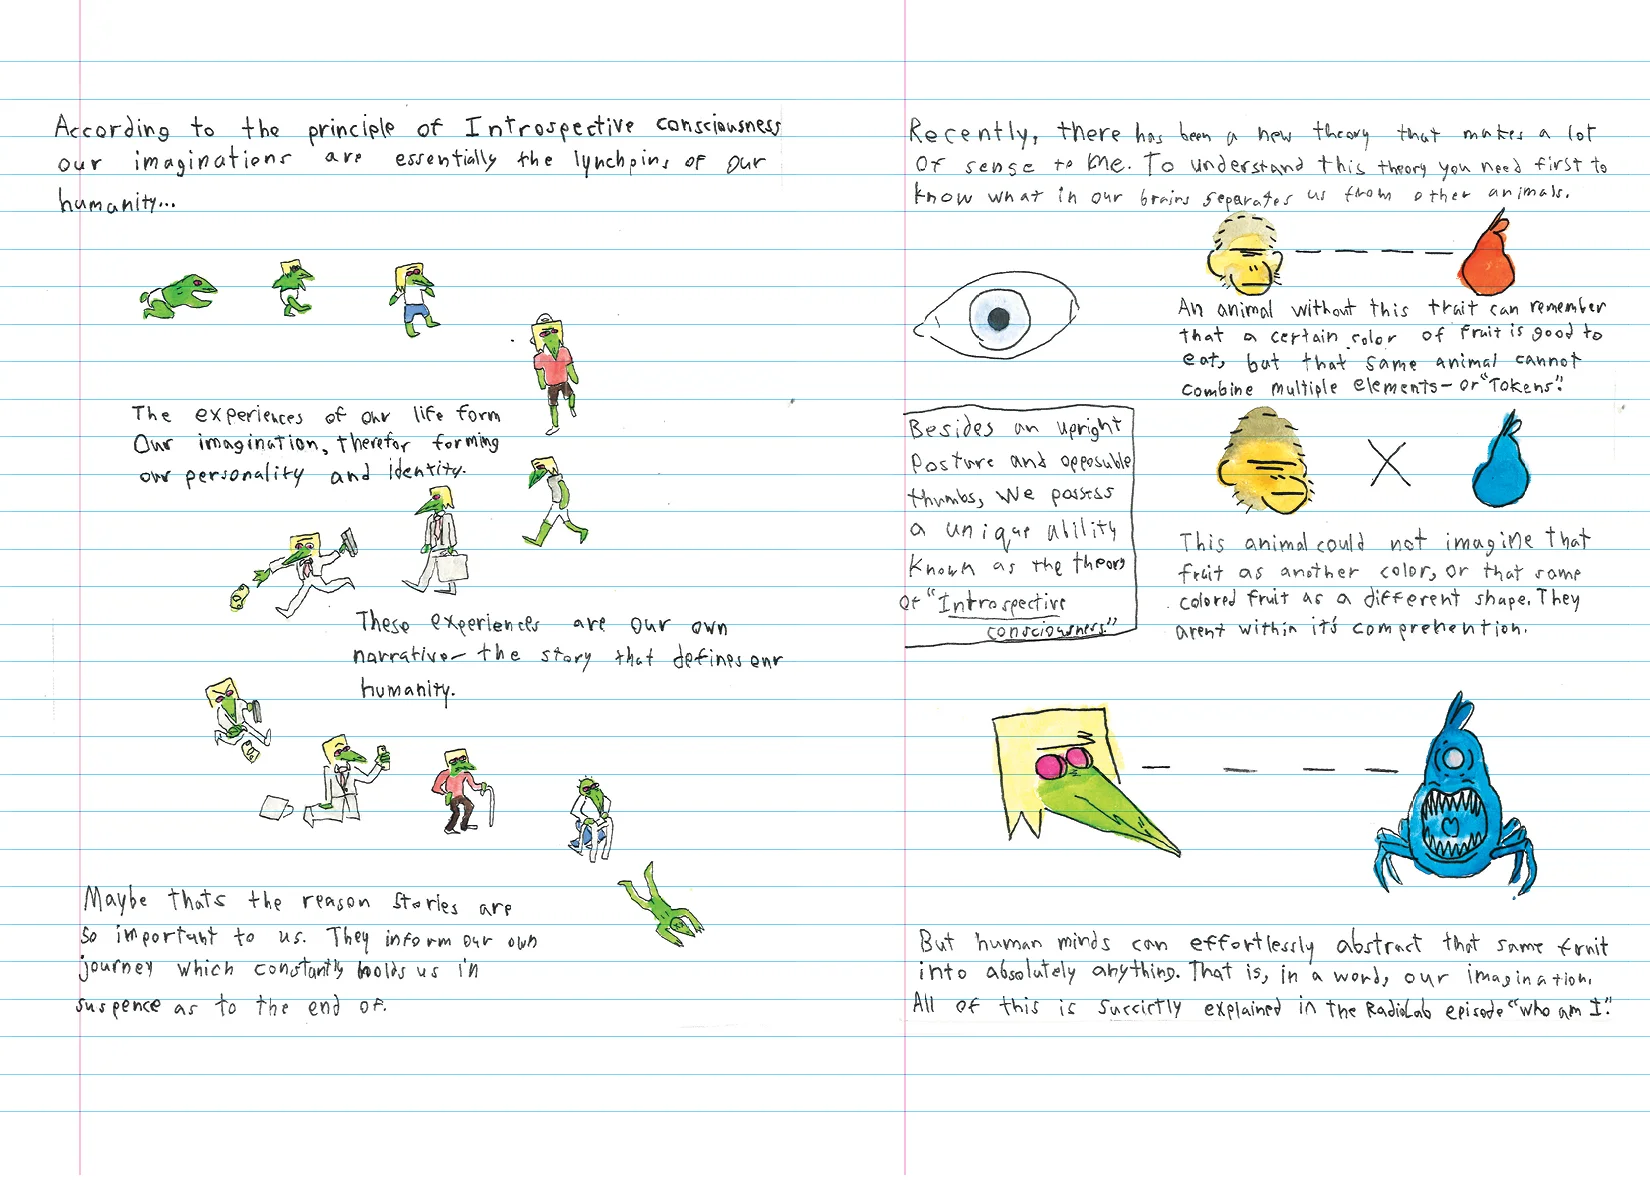 According to the principle of Introspective consciousness
our imaginations are essentially the lynchpins of our
humanity...
The experiences of our life form
Our imagination, therefor forming
our personality and identity.
These experiences are our own
narrative— the story that defines our
humanity.
Maybe thats the reason stories are
so important to us. They inform our own
journey which constantly holds us in
suspence as to the end of.
Recently, there has been a new theory that makes a lot
of sense to me. To understand this theory you need first to
know what in our brains separates us from other animals.
An animal without this trait can remember
that a certain color of fruit is good to
eat, but that same animal cannot
combine multiple elements— or "Tokens".
Besides an upright
posture and opposuble
thumbs, we possess
a unique ability
known as the theory
of "Introspective
consciousness."
This animal could not imagine that
fruit as another color, or that same
colored fruit as a different shape. They
arent within it's comprehention.
But human minds can effortlessly abstract that same fruit
into absolutely anything. That is, in a word, our imagination.
All of this is succictly explained in the RadioLab episode "Who am I."